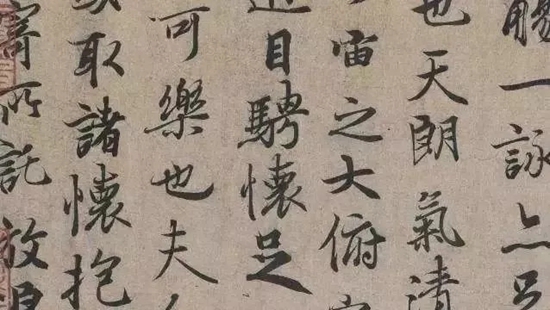 觴一詠亦足
也天朗氣清
宙之大俯
遊目騁懷足
可樂也夫
取諸懷抱
寄所託放浪